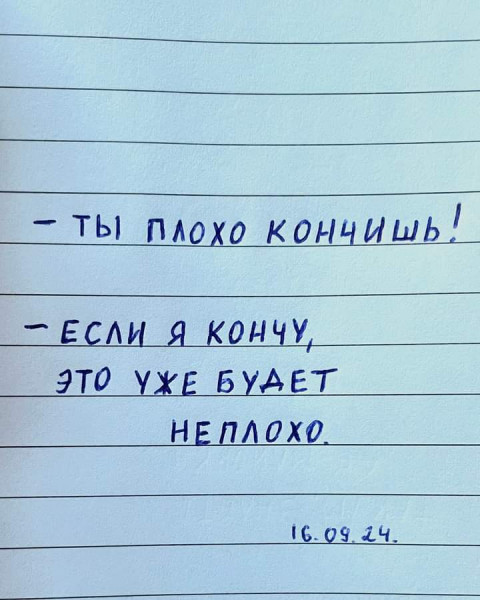 – ТЫ ПЛОХО КОНЧИШЬ!
– ЕСЛИ Я КОНЧУ,
ЭТО УЖЕ БУДЕТ
НЕПЛОХО.
16.09.24.